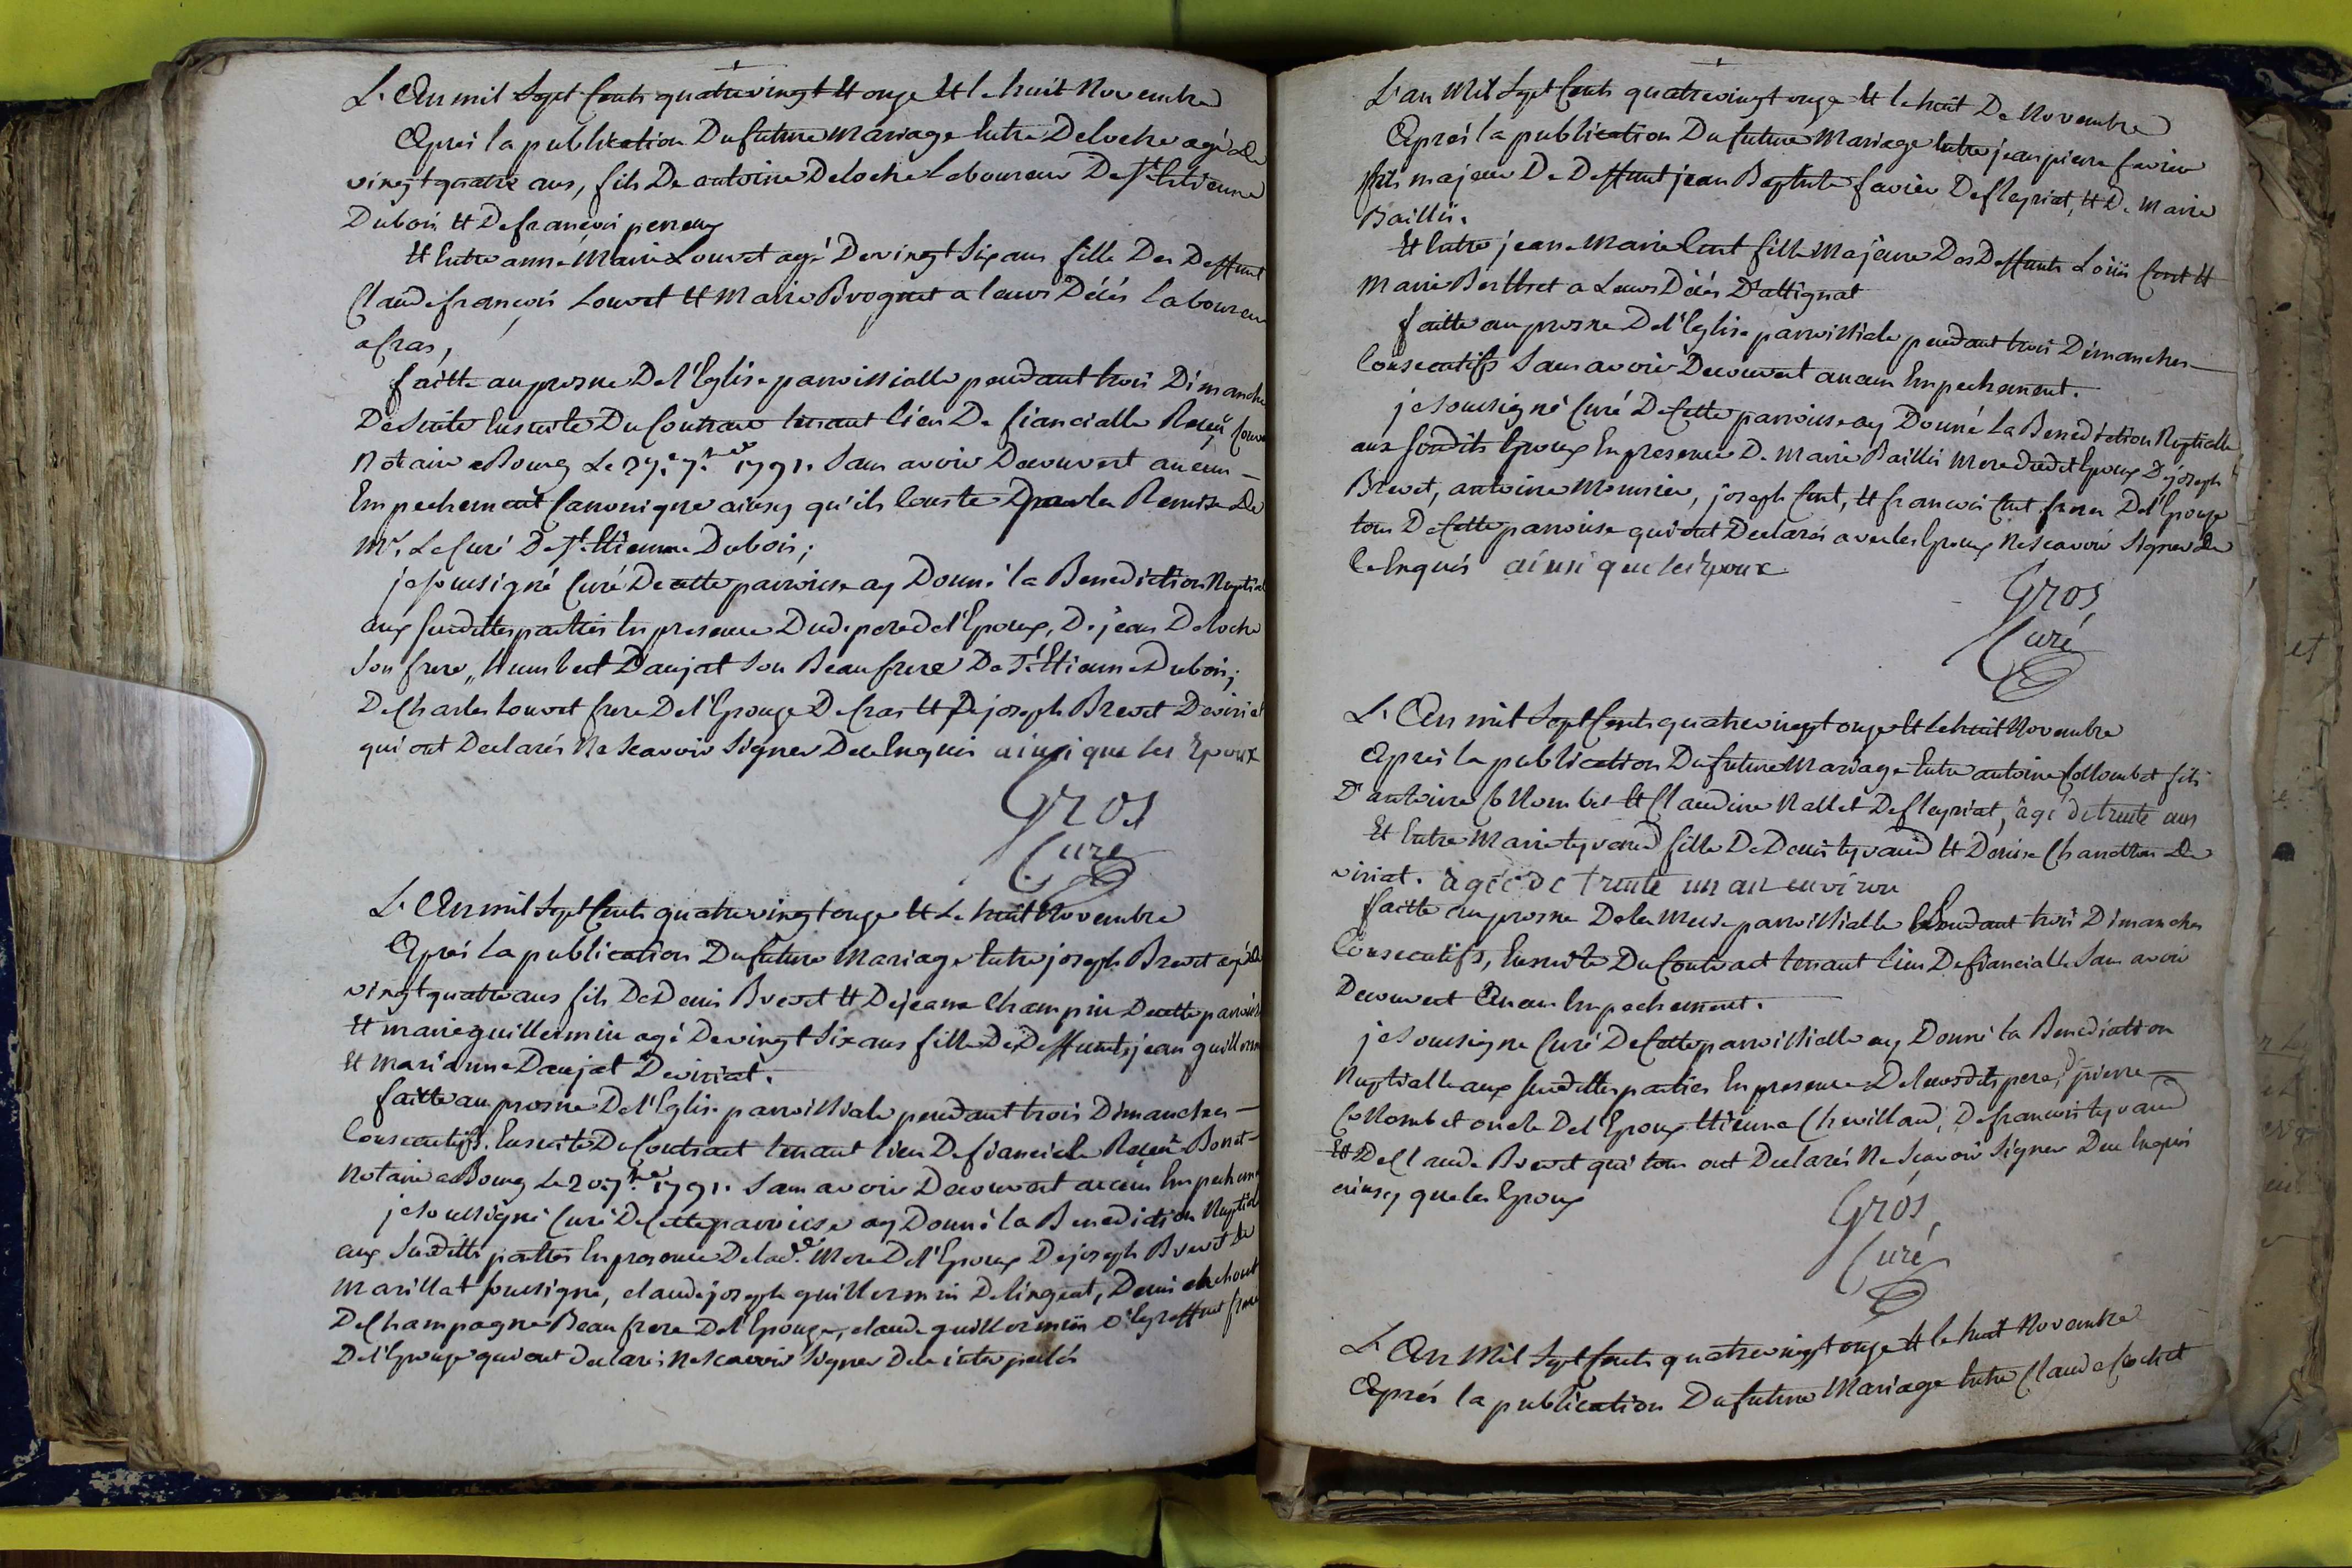 L'An mil Sept Cents quatrevingt Et onze Et le huit Novembre
Après la publication Du future Mariage Entre Deloche agé De
vingt quatre ans, fils De antoine Deloche Laboureur De St. Etienne
Dubois Et De francoise perroux
Et Entre anne Marie Louvet agé De vingt Six ans fille Des Deffunt
Claude françois Louvet Et Marie Brognet a leurs Décès Laboureur
a Cras,
faitte au prosne De l'Eglise parroissialle pendant trois Dimanche
De Suite Ensuite Du Contract tenant lieu De fiancialle Reçeü
Notaire a Bourg Le 27e. 7bre 1791. Sans avoir Decouvert aucun —
Empechement Cannonique ainsy qu'ils Conste par la Remise De
Mr. Le Curé De St. Etienne Dubois;
je soussigné Curé De cette parroisse ay Donné la Benediction Nuptial
aux Sudittes parties En presence Dud. pere De l'Epoux, De jean Deloche
Son frere, Humbert Daujat Son Beau frere De St. Etienne Dubois;
De Charles Louvet frere De l'Epouze De Cras Et De joseph Brevet De viriat
qui ont Declarés Ne Scavoir Signer De ce Enquis ainsi que les Epoux
Gros
Curé
L'An mil Sept Cents quatrevingt onze Et Le huit Novembre
Après La publication Du future Mariage Entre joseph Brevet agé De
vingt quatre ans fils De Denis Brevet Et De jeanne Champin De cette parroisse
Et marie guillermin agé De vingt Six ans fille De Deffunts jean guillerm
Et marianne Daujat De viriat.
faitte au prosne De l'Eglise parroissiale pendant trois Dimanches —
Consecutifs. Ensuite Du Contract tenant lieu De fianciale Reçeü Bonet —
Notaire a Bourg Le 20. 7bre 1791. Sans avoir Decouvert aucun Empechem
je Soussigné Curé De cette parroisse ay Donné la Benediction Nuptial
aux Sudittes parties En presence De lad.e Mere De l'Epoux De joseph Brevet De
Marillat soussigné, claude joseph guillermin De lingeat, Denis
De Champagne Beau frere De l'Epouze, claude guillermin D'Egreffeut frere
De l'Epouze qui ont declarés Ne Scavoir Signer De ce interpellés
L'an Mil Sept Cents quatrevingt onze Et le huit De Novembre
Après la publication Du future Mariage Entre jean pierre favier
fils majeur De Deffunt jean Baptiste favier De fleyriat, Et De Marie
Baillii.
Et Entre jeanne Marie Cent fille Majeure Des Deffunts Loüis Cent Et
Marie Berthet a Leurs Décès D'attignat
faitte au prosne De l'Eglise parroissiale pendant trois Dimanches —
Consecutifs Sans avoir Decouvert aucun Empechement.
je Soussigné Curé De Cette parroisse ay Donné La Benediction Nuptialle
aux Susdits Epoux En presence De Marie Baillii Mere dudit Epoux De joseph
Brevet, antoine Monnier, joseph Cent, Et francois Cent freres De l'Epouze
tous De Cette parroisse qui ont Declarés avec les Epoux Ne Scavoir Signer De
Ce Enquis ainsi que les Epoux
Gros
Curé
L'An mil Sept Cents quatrevingt onze Et le huit Novembre
Après la publication Du future Mariage Entre antoine Collombet fils
D'antoine Collombet Et Claudine Nallet De fleyriat, agé de trente ans
Et Entre Marie tyvand fille De Denis tyvand Et Denise Chanettron De
viriat. agée de trente un an environ
faitte au prosne De la Messe parroissialle pendant trois Dimanches
Consecutifs, Ensuite Du Contract tenant lieu De fiancialle Sans avoir
Decouvert Aucun Empechement.
je Soussigne Curé De Cette parroissialle ay Donné la Benediction
Nuptialle aux Sudittes parties En presence De leursdits peres, De pierre —
Collombet oncle De l'Epoux Etienne Chevilland, De francois tyvand
Et De Claude Brevet qui tous ont Declarés Ne Scavoir Signer De ce Enquis
ainsy que les Epoux
Gros
Curé
L'An Mil Sept Cents quatrevingt onze Et le huit Novembre
Après la publication Du future Mariage Entre Claude Cochet